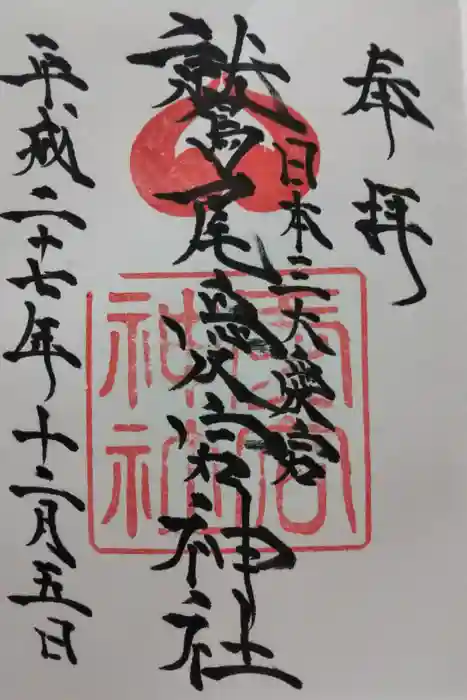 奉拝
日本三大愛宕
鷲尾愛宕神社
平成二十七年十二月五日
愛宕神社